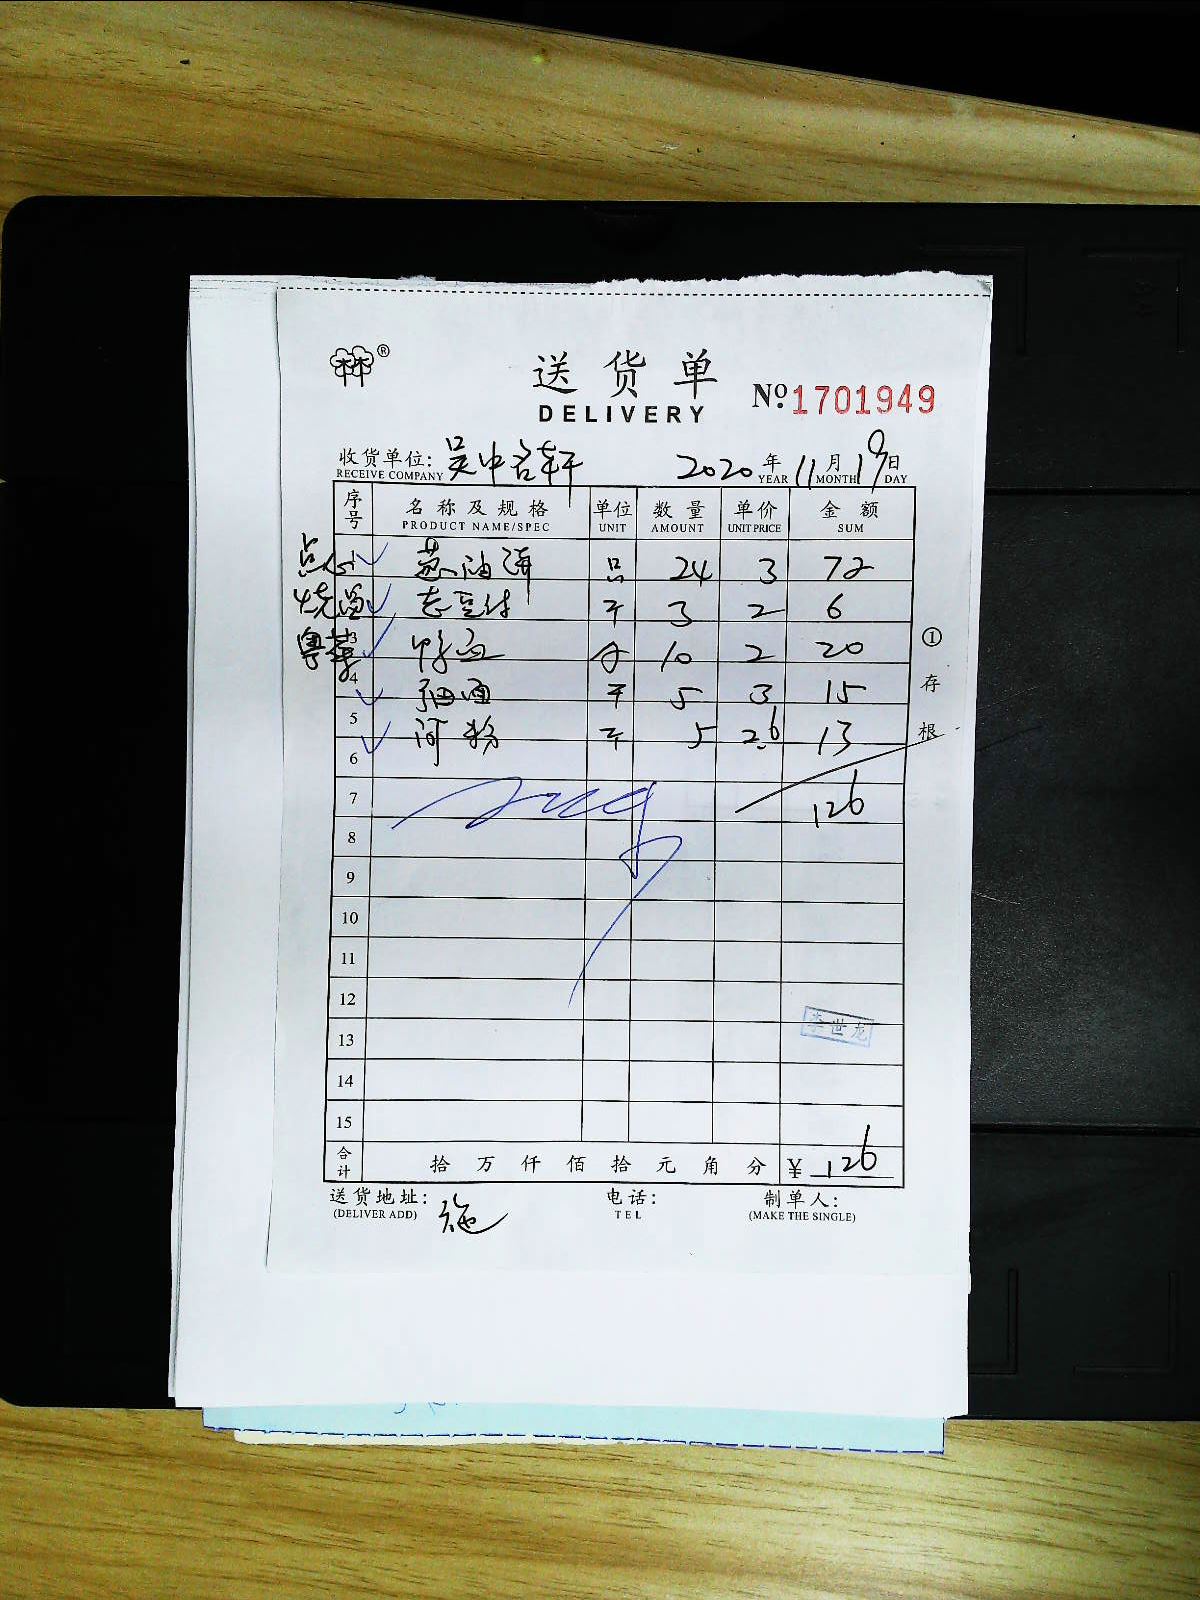 ®
送货单
DELIVERY
Nº.1701949
收货单位: 吴中名轩 2020年11月19日
RECEIVE COMPANY YEAR MONTH DAY
序号 名称及规格 单位 数量 单价 金额
PRODUCT NAME/SPEC UNIT AMOUNT UNIT PRICE SUM
点心 葱油饼 只 24 3 72
烧卤 老豆付 斤 3 2 6
3 粤菜 鸭血 介 10 2 20
4 细面 斤 5 3 15
5 河粉 斤 5 2.6 13
6
7 126
8
9
10
11
12
李世龙
13
14
15
合计 拾万仟佰拾元角分 ¥ 126
送货地址: 施 电话: 制单人:
(DELIVER ADD) TEL (MAKE THE SINGLE)
①存根